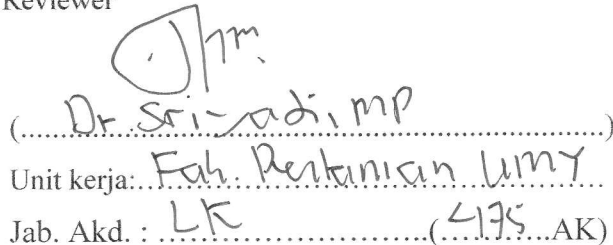 Reviewer
(Dr. Sriyadi, MP)
Unit kerja: Fak. Pertanian UMY
Jab. Akd. : LK (475 AK)